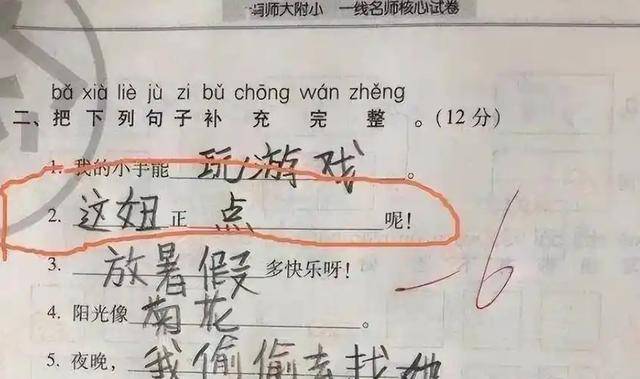 大附小 一线名师核心试卷
bǎ xià liè jù zi bǔ chōng wán zhěng
二、把下列句子补充完整。(12分)
1. 我的小手能玩游戏。
2. 这妞正点呢!
3. 放暑假多快乐呀!
4. 阳光像菊花。
5. 夜晚,我偷偷去找她
-6